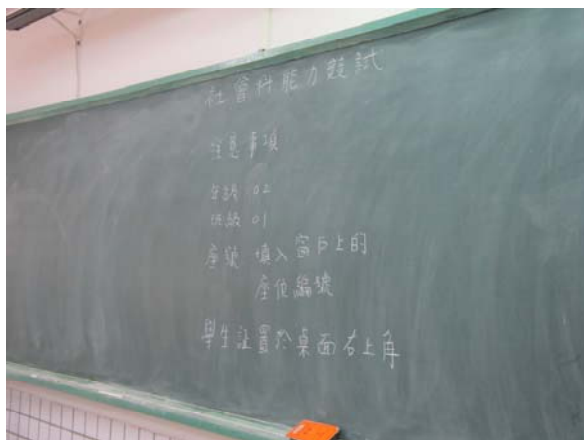 社會科能力競試
注意事項
年級 02
班級 01
座號 填入窗戶上的
座位編號
學生証置於桌面右上角